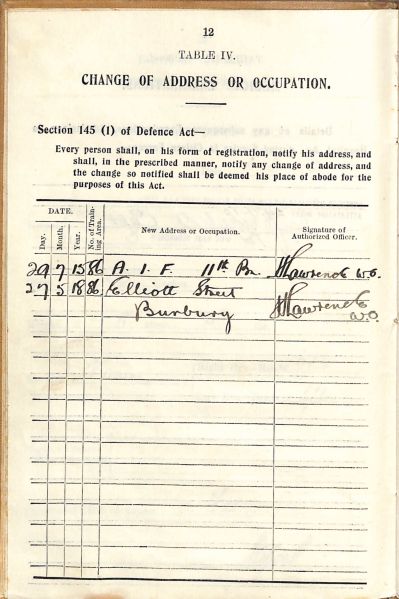 12
TABLE IV.
CHANGE OF ADDRESS OR OCCUPATION.
Section 145 (1) of Defence Act—
Every person shall, on his form of registration, notify his address, and
shall, in the prescribed manner, notify any change of address, and
the change so notified shall be deemed his place of abode for the
purposes of this Act.
DATE.
Day. Month. Year. No. of Train-ing Area. New Address or Occupation. Signature of Authorized Officer.
29 7 15 86 A. I. F. 11th Bn. Lawrence W.O.
27 5 18 86 Elliott Street Lawrence
Bunbury W.O.